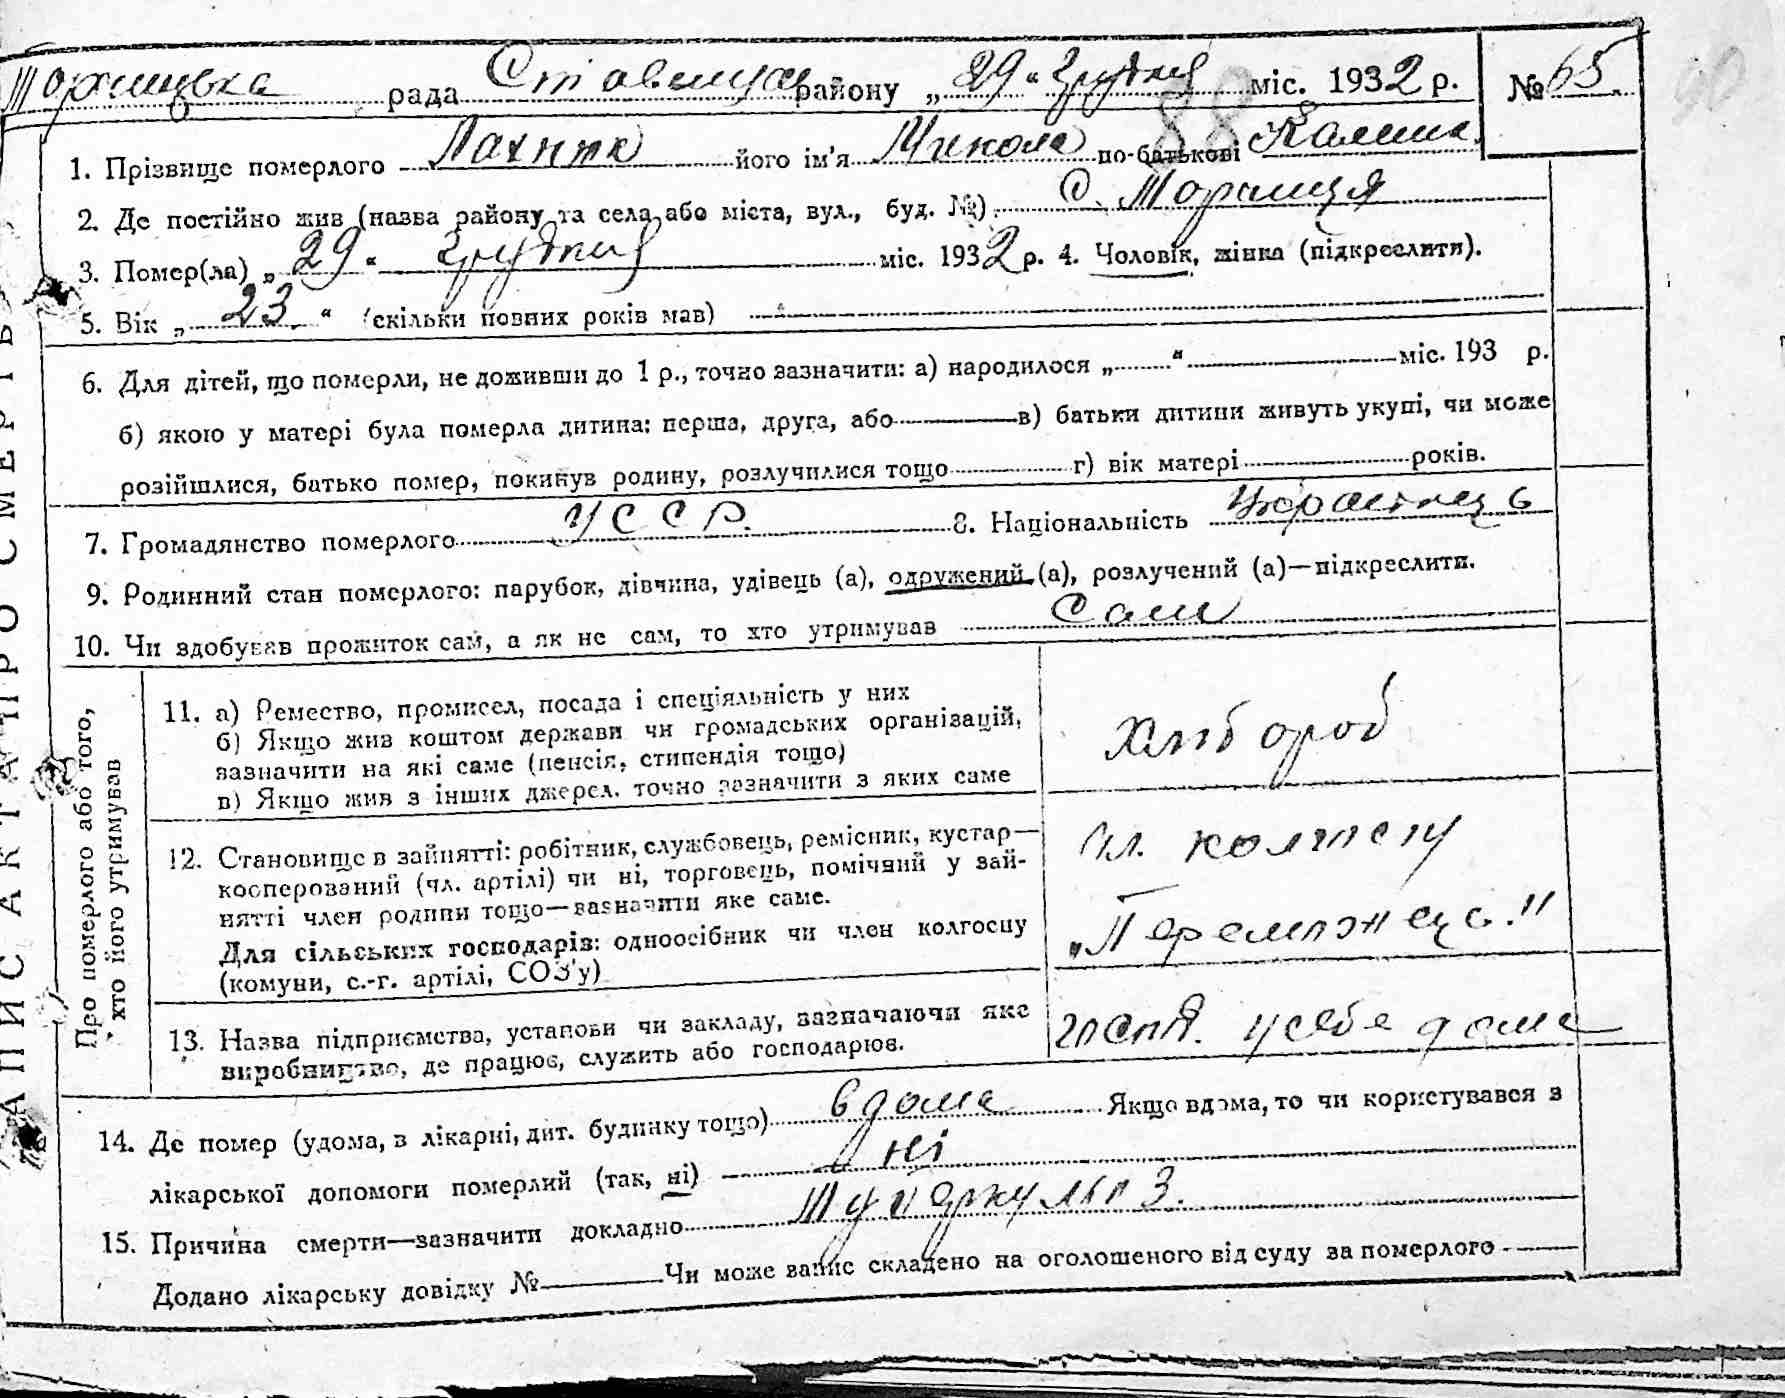 рада Ставищ району „29“ грудня міс. 1932 р. № 65
88
90
1. Прізвище померлого його ім'я Микола по-батькові
2. Де постійно жив (назва району та села або міста, вул., буд. №) с. Торчиця
3. Помер(ла) „29“ грудня міс. 1932 р. 4. Чоловік, жінка (підкреслити).
5. Вік „23“ (скільки повних років мав)
6. Для дітей, що померли, не доживши до 1 р., точно зазначити: а) народилося „ “ міс. 193 р.
б) якою у матері була померла дитина: перша, друга, або в) батьки дитини живуть укупі, чи може
розійшлися, батько помер, покинув родину, розлучилися тощо г) вік матері років.
7. Громадянство померлого УССР. 8. Національність Українець
9. Родинний стан померлого: парубок, дівчина, удівець (а), одружений (а), розлучений (а)—підкреслити.
10. Чи здобував прожиток сам, а як не сам, то хто утримував Сам
ЗАПИС АКТА ПРО СМЕРТЬ
Про померлого або того,
хто його утримував
11. а) Ремество, промисел, посада і спеціяльність у них
б) Якщо жив коштом держави чи громадських організацій,
зазначити на які саме (пенсія, стипендія тощо)
в) Якщо жив з інших джерел. точно зазначити з яких саме
хлібороб
12. Становище в зайнятті: робітник, службовець, ремісник, кустар—
косперований (чл. артілі) чи ні, торговець, помічний у зай-
нятті член родини тощо—зазначити яке саме.
Для сільських господарів: одноосібник чи член колгоспу
(комуни, с.-г. артілі, СОЗ'у)
чл. колгоспу
„Переможець."
13. Назва підприємства, установи чи закладу, зазначаючи яке
виробництво, де працює, служить або господарює.
у себе дома
14. Де помер (удома, в лікарні, дит. будинку тощо) вдома Якщо вдома, то чи користувався з
лікарської допомоги померлий (так, ні) ні
15. Причина смерти—зазначити докладно Туберкульоз.
Додано лікарську довідку № Чи може запис складено на оголошеного від суду за померлого